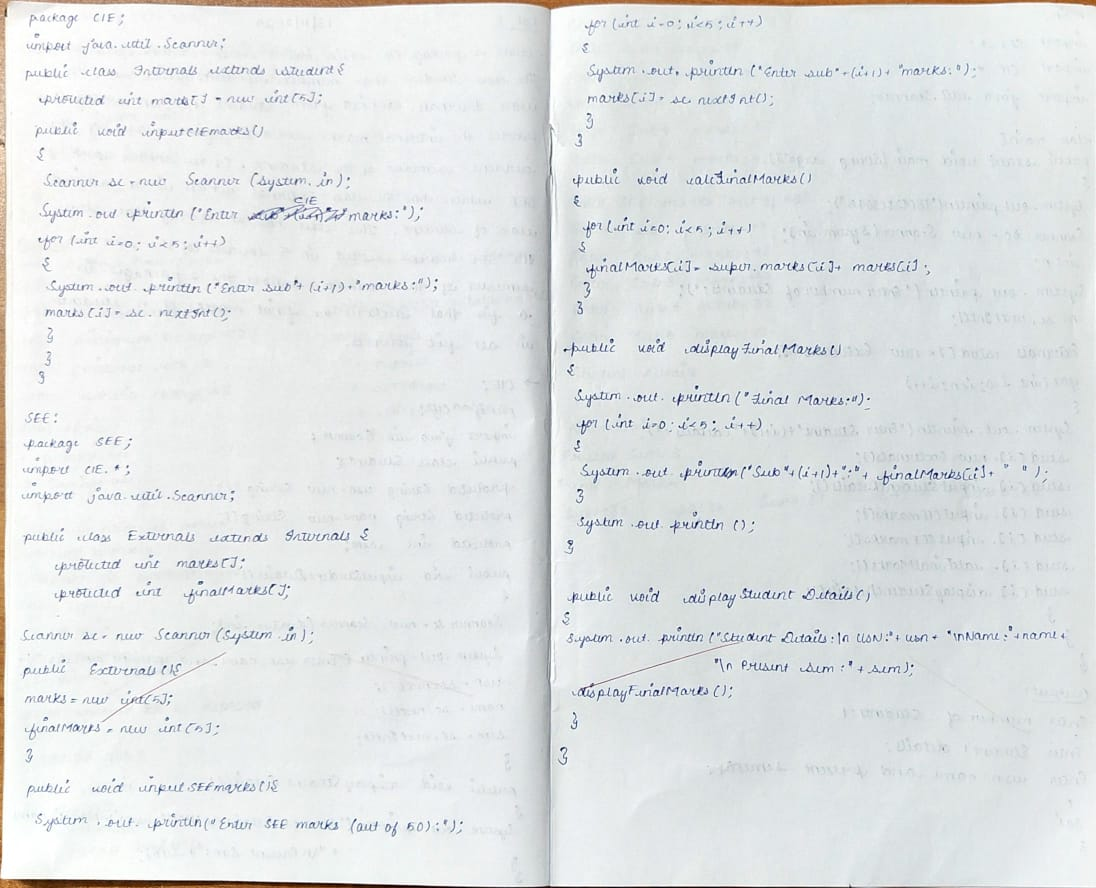 package CIE;
import java.util.Scanner;
public class Internals extends student{
protected int marks[] = new int[5];
public void inputCIEmarks()
{
Scanner sc = new Scanner (System.in);
System.out println ("Enter CIE marks:");
for (int i=0; i<5; i++)
{
System.out.println ("Enter sub"+ (i+1)+"marks:");
marks[i]= sc.nextInt();
}
}
}
SEE:
package SEE;
import CIE.*;
import java.util.Scanner;
public class Externals extends Internals {
protected int marks[];
protected int finalMarks[];
Scanner sc = new Scanner(System.in);
public Externals(){
marks = new int[5];
finalMarks = new int[5];
}
public void inputSEEmarks(){
System.out.println("Enter SEE marks (out of 50):");
for (int i=0; i<5; i++)
{
System.out.println ("Enter sub"+(i+1)+ "marks:");
marks[i]= sc.nextInt();
}
}
public void calcFinalMarks()
{
for (int i=0; i<5; i++)
{
finalMarks[i]= super.marks[i]+ marks[i];
}
}
public void displayFinalMarks()
{
System.out.println ("Final Marks:");
for (int i=0; i<5; i++)
{
System.out.println("Sub"+(i+1)+":"+ finalMarks[i]+ " ");
}
System.out.println ();
}
public void displayStudent Details()
{
System.out.println ("Student Details:\n USN:"+ usn + "\nName:"+name+
"\n Present Sem:" + sem);
displayFinalMarks();
}
}